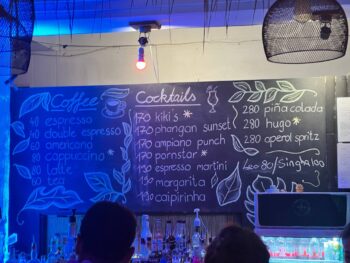 Coffee
40 espresso
40 double espresso
60 americano
80 cappuccino *
80 Latte
60
Cocktails
170 kiki's *
170 phangan sunset
170 ampiano punch
170 pornstar *
190 espresso martini
190 margarita
190 caipirinha
280 piña colada
280 hugo *
280 aperol spritz
Leo 80/Singha 100